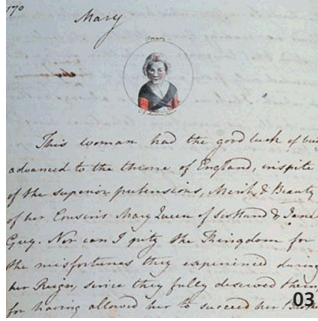 170
Mary
This woman had the good luck of bei
advanced to the throne of England, inspite
of the superior pretensions, Merit, & Beauty
of her Cousins Mary Queen of Scotland & Jane
Grey. Nor can I pity the Kingdom for
the misfortunes they experienced durin
her Reign, since they fully deserved them
for having allowed her to succeed her
03